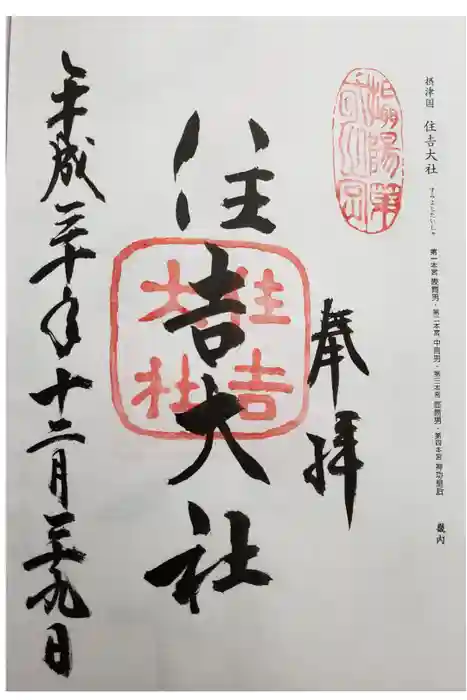 摂津国 住吉大社 すみよしたいしゃ 第一本宮 底筒男・第二本宮 中筒男・第三本宮 表筒男・第四本宮 神功皇后 畿内
奉拝
住吉大社
住吉
大社
平成三十年十二月二十九日